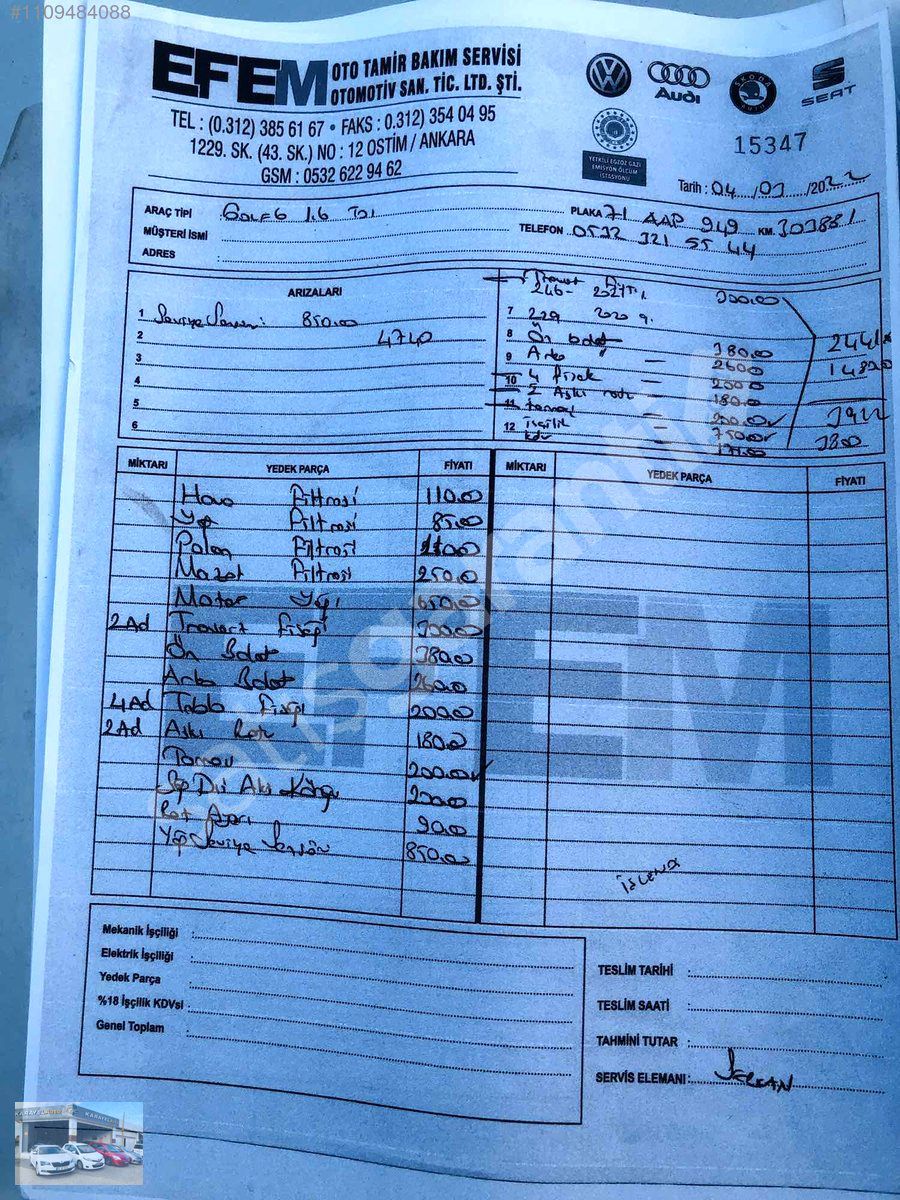 #1109484088
EFEM OTO TAMİR BAKIM SERVİSİ
OTOMOTİV SAN. TİC. LTD. ŞTİ.
TEL : (0.312) 385 61 67 • FAKS : 0.312) 354 04 95
1229. SK. (43. SK.) NO : 12 OSTİM / ANKARA
GSM : 0532 622 94 62
Audi
SKODA
SEAT
YETKİLİ EGZOZ GAZI
EMİSYON ÖLÇÜM
İSTASYONU
15347
Tarih : 04 / 01 /2022
ARAÇ TİPİ Golf 6 1.6 TDI
PLAKA 71 AAP 949 KM. 303881
MÜŞTERİ İSMİ
TELEFON 0532 321 55 44
ADRES
ARIZALARI
1 Seviye Sensörü 850.00
2 4740
3
4
5
6
300.00
7 229
8 Ön balat 380.00 2441
9 Arka 260.00
10 4 200.00
2 Askı rotu 180.00
11 200.00 3922
12 işçilik 750.00 3800
kdv
MİKTARI YEDEK PARÇA FİYATI
MİKTARI YEDEK PARÇA FİYATI
Hava Filtresi 110.00
Yağ Filtresi 85.00
Polen Filtresi
Mazot Filtresi 250.00
Motor Yağı 650.00
2 Ad 300.00
Ön Balat 380.00
Arka Balat 260.00
4 Ad Tabla 200.00
2 Ad Askı Rot 180.00
200.00
Sağ Dış Aks 200.00
Rot Ayarı 90.00
Yağ Seviye Sensörü 850.00
EFEM
Mekanik İşçiliği
Elektrik İşçiliği
Yedek Parça
%18 İşçilik KDVsi
Genel Toplam
TESLİM TARİHİ
TESLİM SAATİ
TAHMİNİ TUTAR
SERVİS ELEMANI: SERKAN